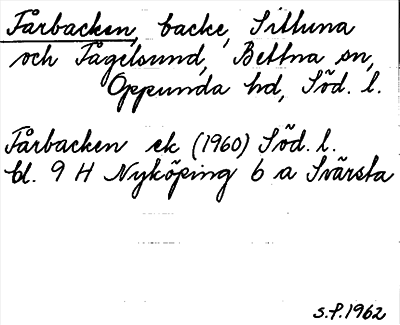 Fårbacken, backe, Sittuna
och Fågelsund, Bettna sn,
Oppunda hd, Söd. l.
Fårbacken ek (1960) Söd. l.
bl. 9 H Nyköping 6 a Svärsta
S.P. 1962